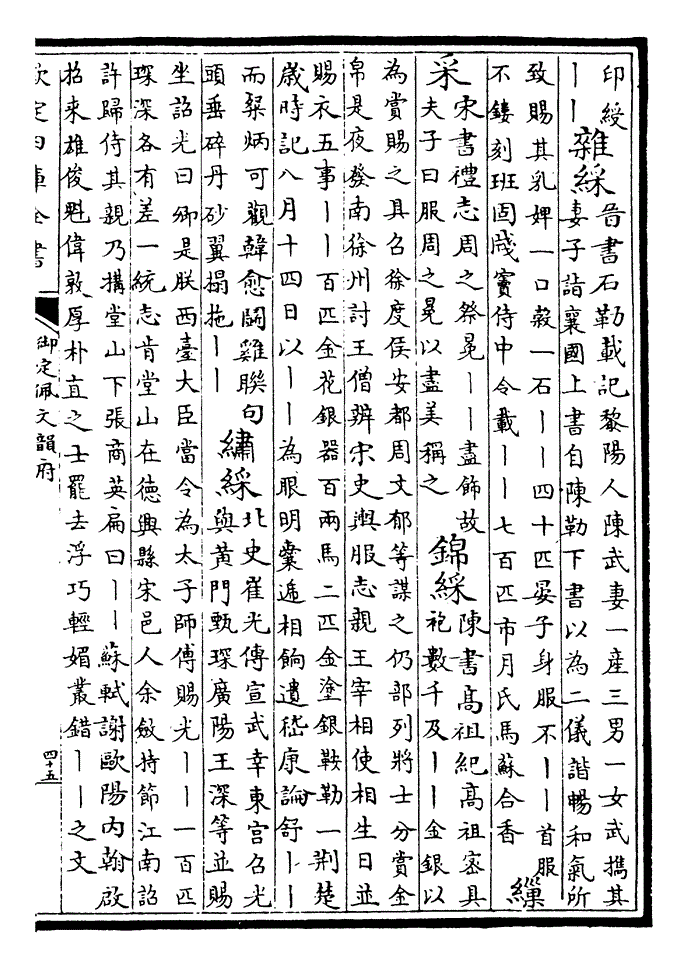 印綬丨丨
雜綵
晉書石勒載記黎陽人陳武妻一産三男一女武攜其
妻子詣襄國上書自陳勒下書以為二儀諧暢和氣所
致賜其乳婢一口穀一石丨丨四十匹晏子身服不丨丨首服
不鏤刻班固牋竇侍中令載丨丨七百匹市月氏馬蘇合香
纁
采
宋書禮志周之祭冕丨丨盡飾故
夫子曰服周之冕以盡美稱之
錦綵
陳書高祖紀高祖密具
袍數千及丨丨金銀以
為賞賜之具召徐度侯安都周文郁等謀之仍部列將士分賞金
帛是夜發南徐州討王僧辨宋史輿服志親王宰相使相生日並
賜衣五事丨丨百匹金花銀器百兩馬二匹金塗銀鞍勒一荆楚
歲時記八月十四日以丨丨為眼明囊遞相餉遺嵇康論舒丨丨
而粲炳可觀韓愈鬭雞聯句
頭垂碎丹砂翼搨拖丨丨
繡綵
北史崔光傳宣武幸東宮召光
與黄門甄琛廣陽王深等並賜
坐詔光曰卿是朕西臺大臣當令為太子師傅賜光丨丨一百匹
琛深各有差一統志肯堂山在德興縣宋邑人余斂持節江南詔
許歸侍其親乃搆堂山下張商英扁曰丨丨蘇軾謝歐陽内翰啟
招來雄俊魁偉敦厚朴直之士罷去浮巧輕媚叢錯丨丨之文
欽定四庫全書
御定佩文韻府
四十五